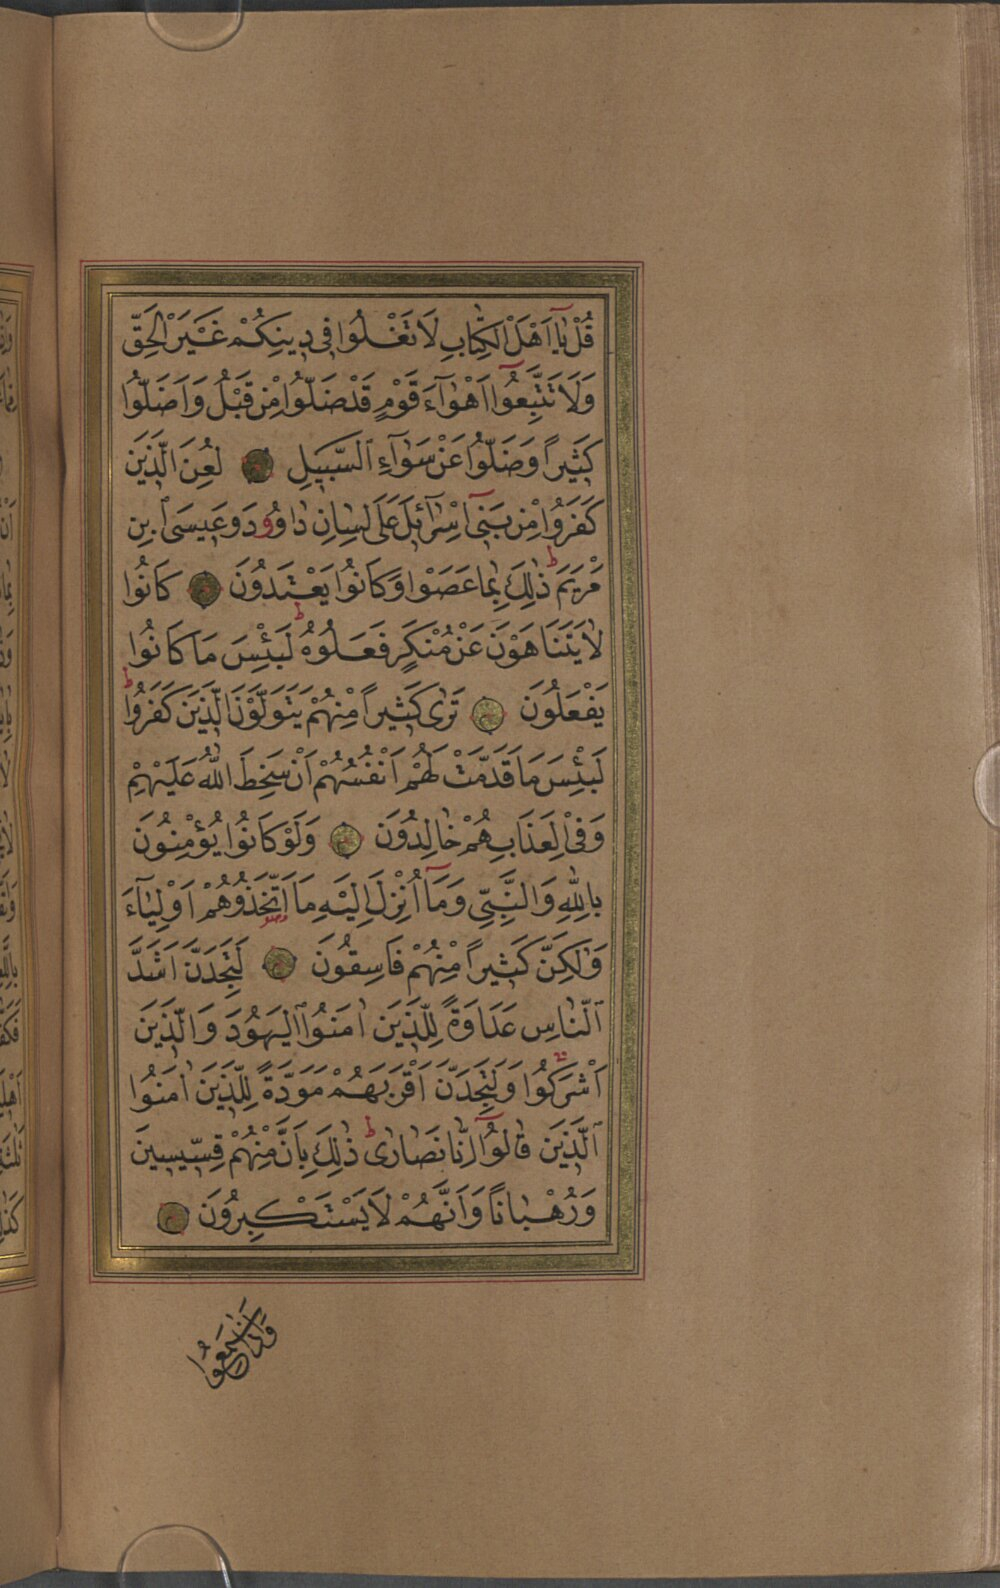 قُلْ يَٓا اَهْلَ الْكِتَابِ لَا تَغْلُوا فِى دِينِكُمْ غَيْرَ الْحَقِّ
وَلَا تَتَّبِعُٓوا اَهْوَٓاءَ قَوْمٍ قَدْ ضَلُّوا مِنْ قَبْلُ وَاَضَلُّوا
كَثِيراً وَضَلُّوا عَنْ سَوَٓاءِ السَّبِيلِ لُعِنَ الَّذِينَ
كَفَرُوا مِنْ بَنِٓى اِسْرَٓائِلَ عَلَى لِسَانِ دَاوُودَ وَعِيسَى ابْنِ
مَرْيَمَ ط ذٰلِكَ بِمَا عَصَوْا وَكَانُوا يَعْتَدُونَ كَانُوا
لَا يَتَنَاهَوْنَ عَنْ مُنْكَرٍ فَعَلُوهُ ط لَبِئْسَ مَا كَانُوا
يَفْعَلُونَ تَرٰى كَثِيراً مِنْهُمْ يَتَوَلَّوْنَ الَّذِينَ كَفَرُوا ط
لَبِئْسَ مَا قَدَّمَتْ لَهُمْ اَنْفُسُهُمْ اَنْ سَخِطَ اللّٰهُ عَلَيْهِمْ
وَفِى الْعَذَابِ هُمْ خَالِدُونَ وَلَوْ كَانُوا يُؤْمِنُونَ
بِاللّٰهِ وَالنَّبِىِّ وَمَٓا اُنْزِلَ اِلَيْهِ مَا اتَّخَذُوهُمْ اَوْلِيَٓاءَ
وَلٰكِنَّ كَثِيراً مِنْهُمْ فَاسِقُونَ لَتَجِدَنَّ اَشَدَّ
النَّاسِ عَدَاوَةً لِلَّذِينَ اٰمَنُوا الْيَهُودَ وَالَّذِينَ
اَشْرَكُوا وَلَتَجِدَنَّ اَقْرَبَهُمْ مَوَدَّةً لِلَّذِينَ اٰمَنُوا
الَّذِينَ قَالُٓوا اِنَّا نَصَارٰى ط ذٰلِكَ بِاَنَّ مِنْهُمْ قِسِّيسِينَ
وَرُهْبَاناً وَاَنَّهُمْ لَا يَسْتَكْبِرُونَ
وَاِذَا سَمِعُوا